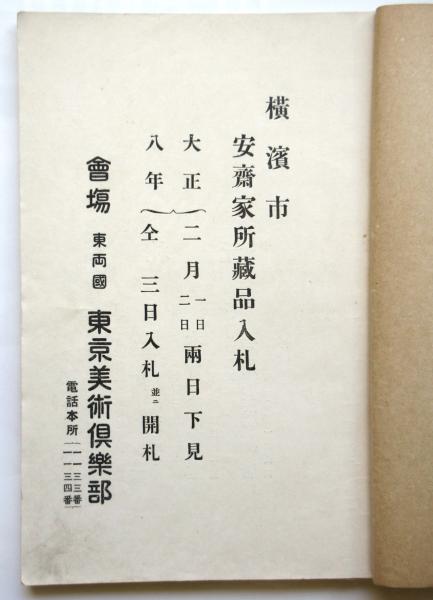 横濱市
安齋家所藏品入札
大正八年
二月一日二日兩日下見
仝三日入札並ニ開札
會場 東両國 東京美術倶樂部
電話本所一一三三番
一一三四番